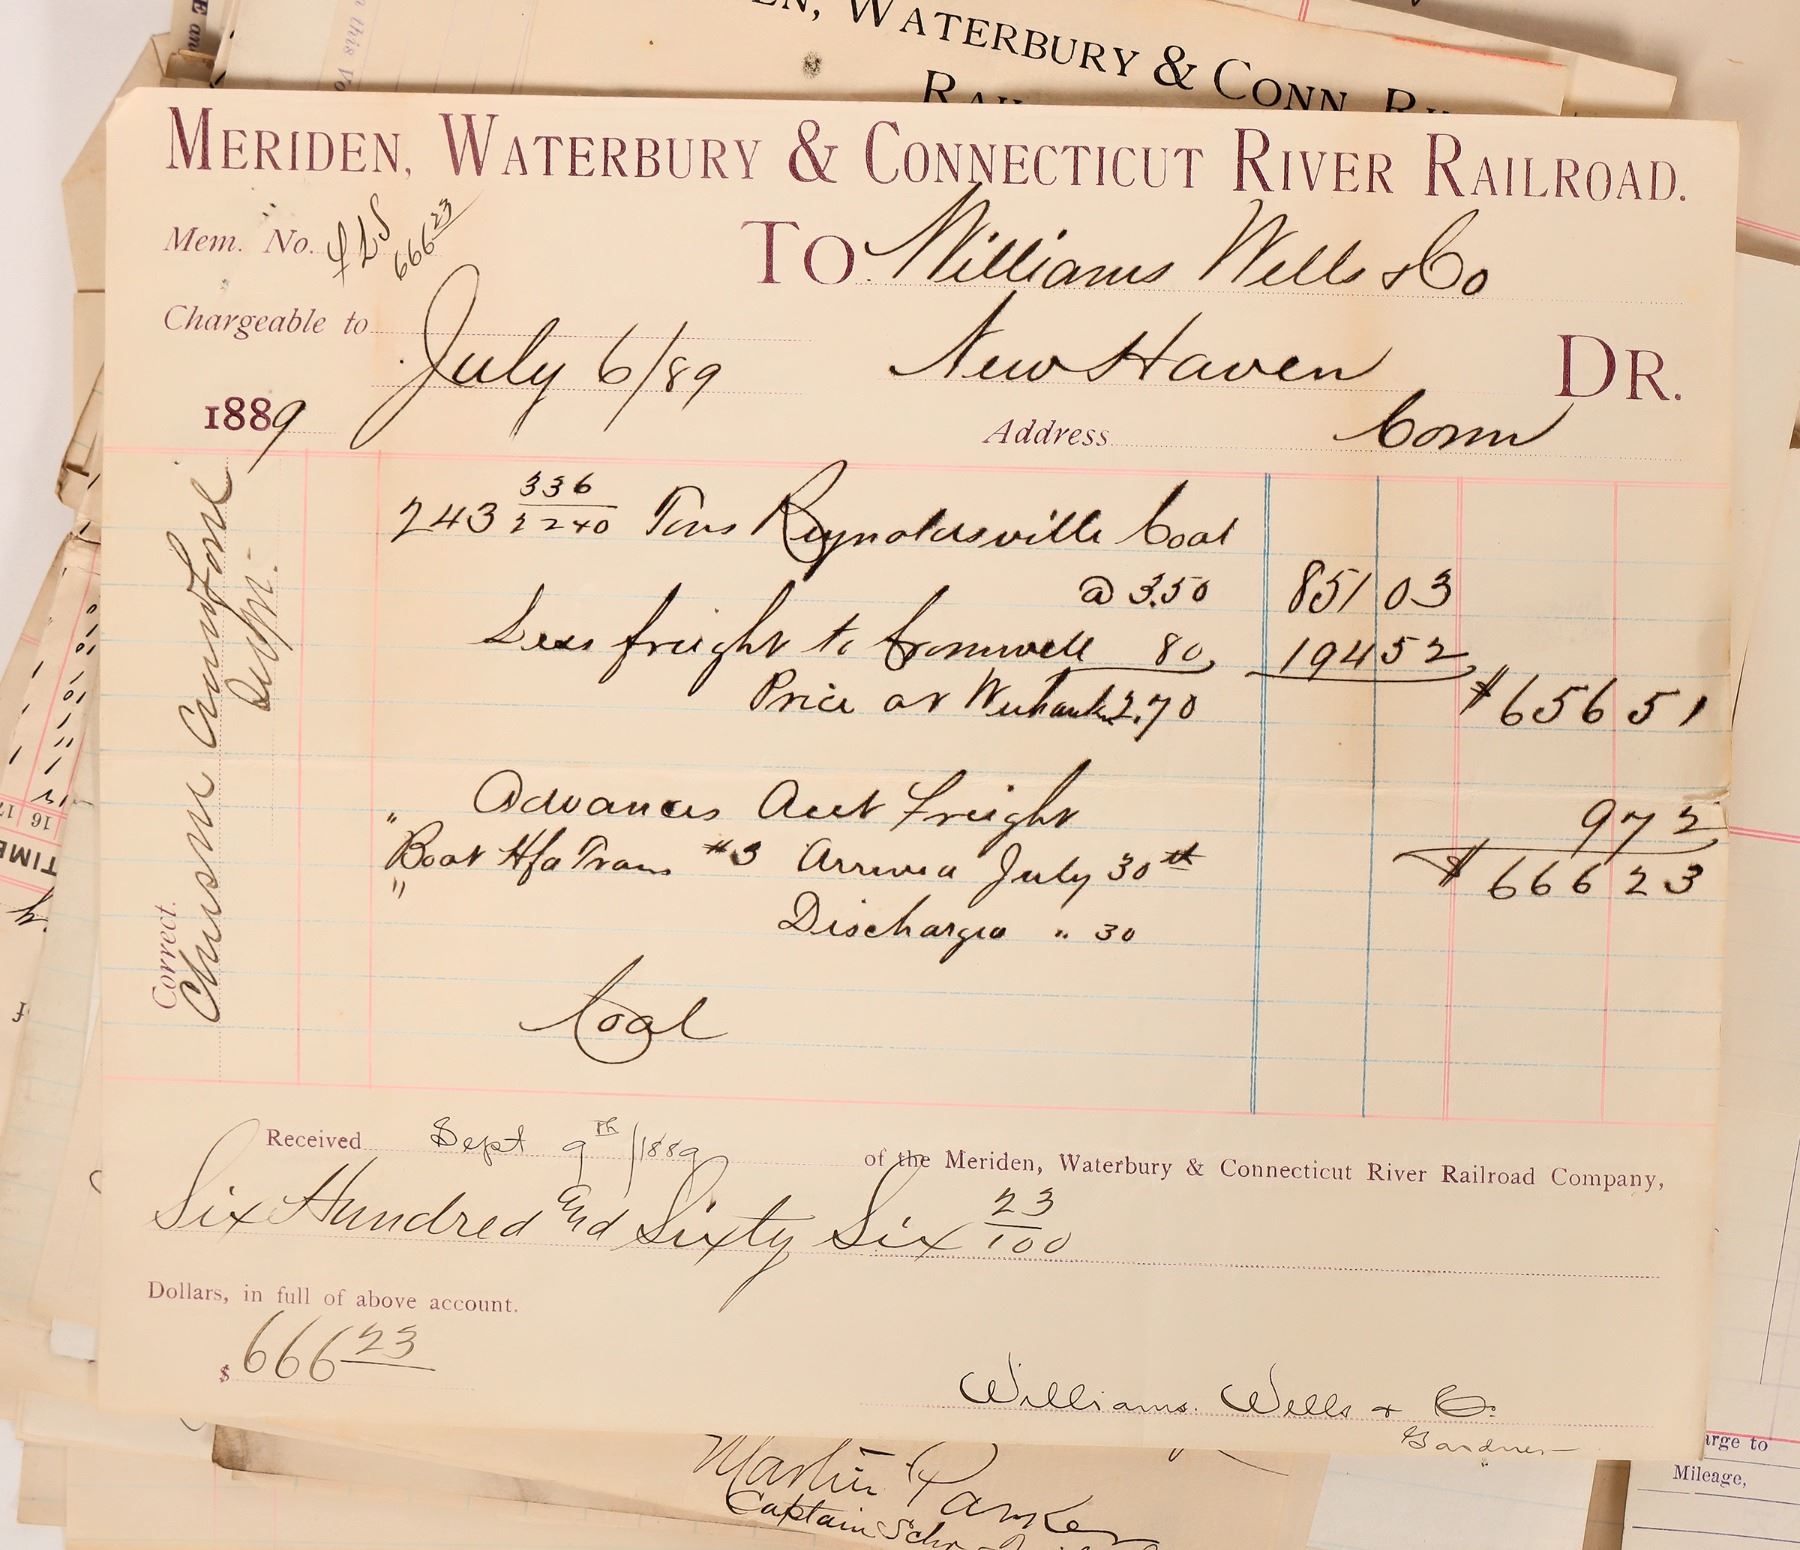 EN, WATERBURY & CONN. RI
MERIDEN, WATERBURY & CONNECTICUT RIVER RAILROAD.
Mem. No.
666 23
TO Williams Wells & Co
Chargeable to
July 6/89
New Haven DR.
1889
Address Conn
243 336/2240 Tons Reynoldsville Coal
@ 3.50 851 03
Less freight to Cromwell 80 194 52
Price at 2.70 $656 51
Advances Acct Freight 9 72
" Boat Trans #3 Arrived July 30th $666 23
" Discharged " 30
Coal
Correct.
Supt.
Received Sept 9th/1889 of the Meriden, Waterbury & Connecticut River Railroad Company,
Six Hundred and Sixty Six 23/100
Dollars, in full of above account.
$ 666 23
Williams. Wells & Co.
Gardner
Martin Parker
Captain Schr
arge to
Mileage,
16 17
TIME